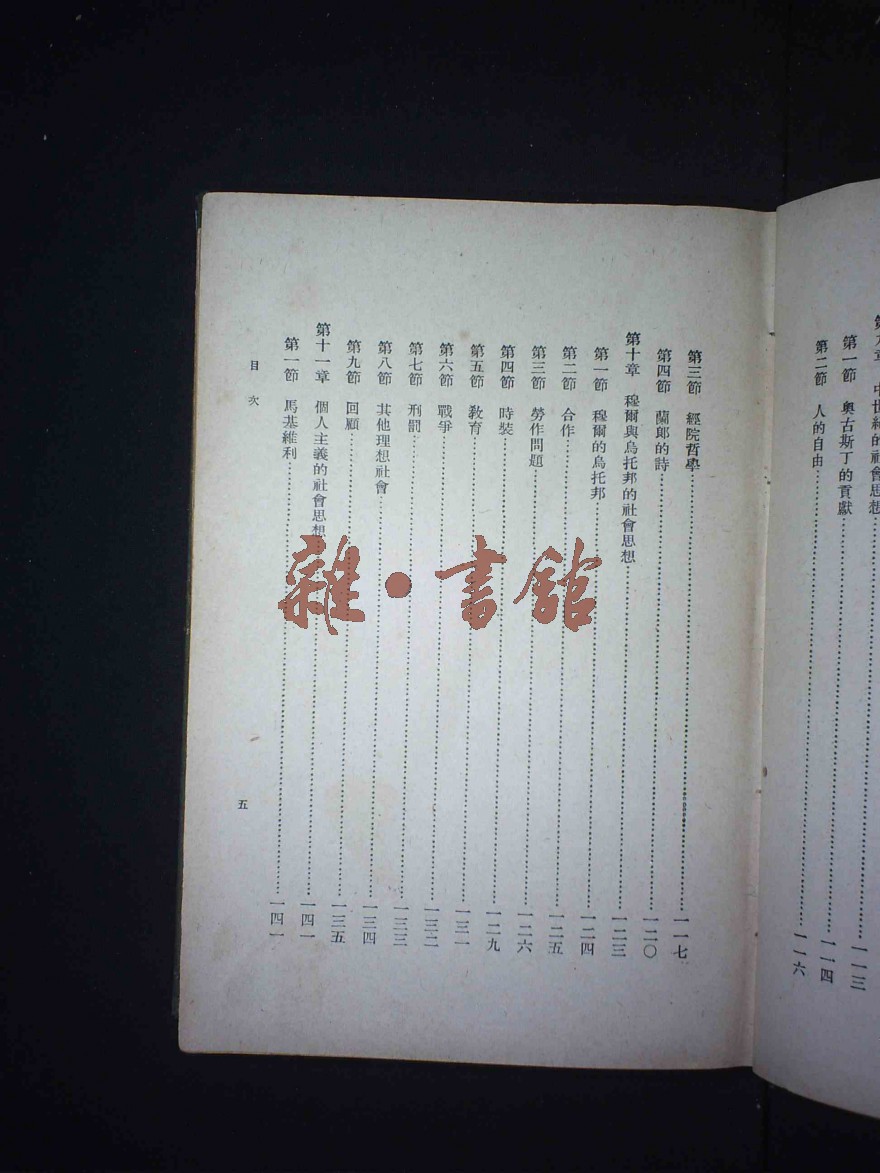 第九章 中世紀的社會思想 一一三
第一節 奧古斯丁的貢獻 一一四
第二節 人的自由 一一六
第三節 經院哲學 一一七
第四節 蘭郎的詩 一二〇
第十章 穆爾與烏托邦的社會思想 一二三
第一節 穆爾的烏托邦 一二四
第二節 合作 一二五
第三節 勞作問題 一二六
第四節 時裝 一二九
第五節 教育 一三一
第六節 戰爭 一三二
第七節 刑罰 一三三
第八節 其他理想社會 一三四
第九節 回顧 一三五
第十一章 個人主義的社會思想 一四一
第一節 馬基維利 一四一
目次
五
雜·書館